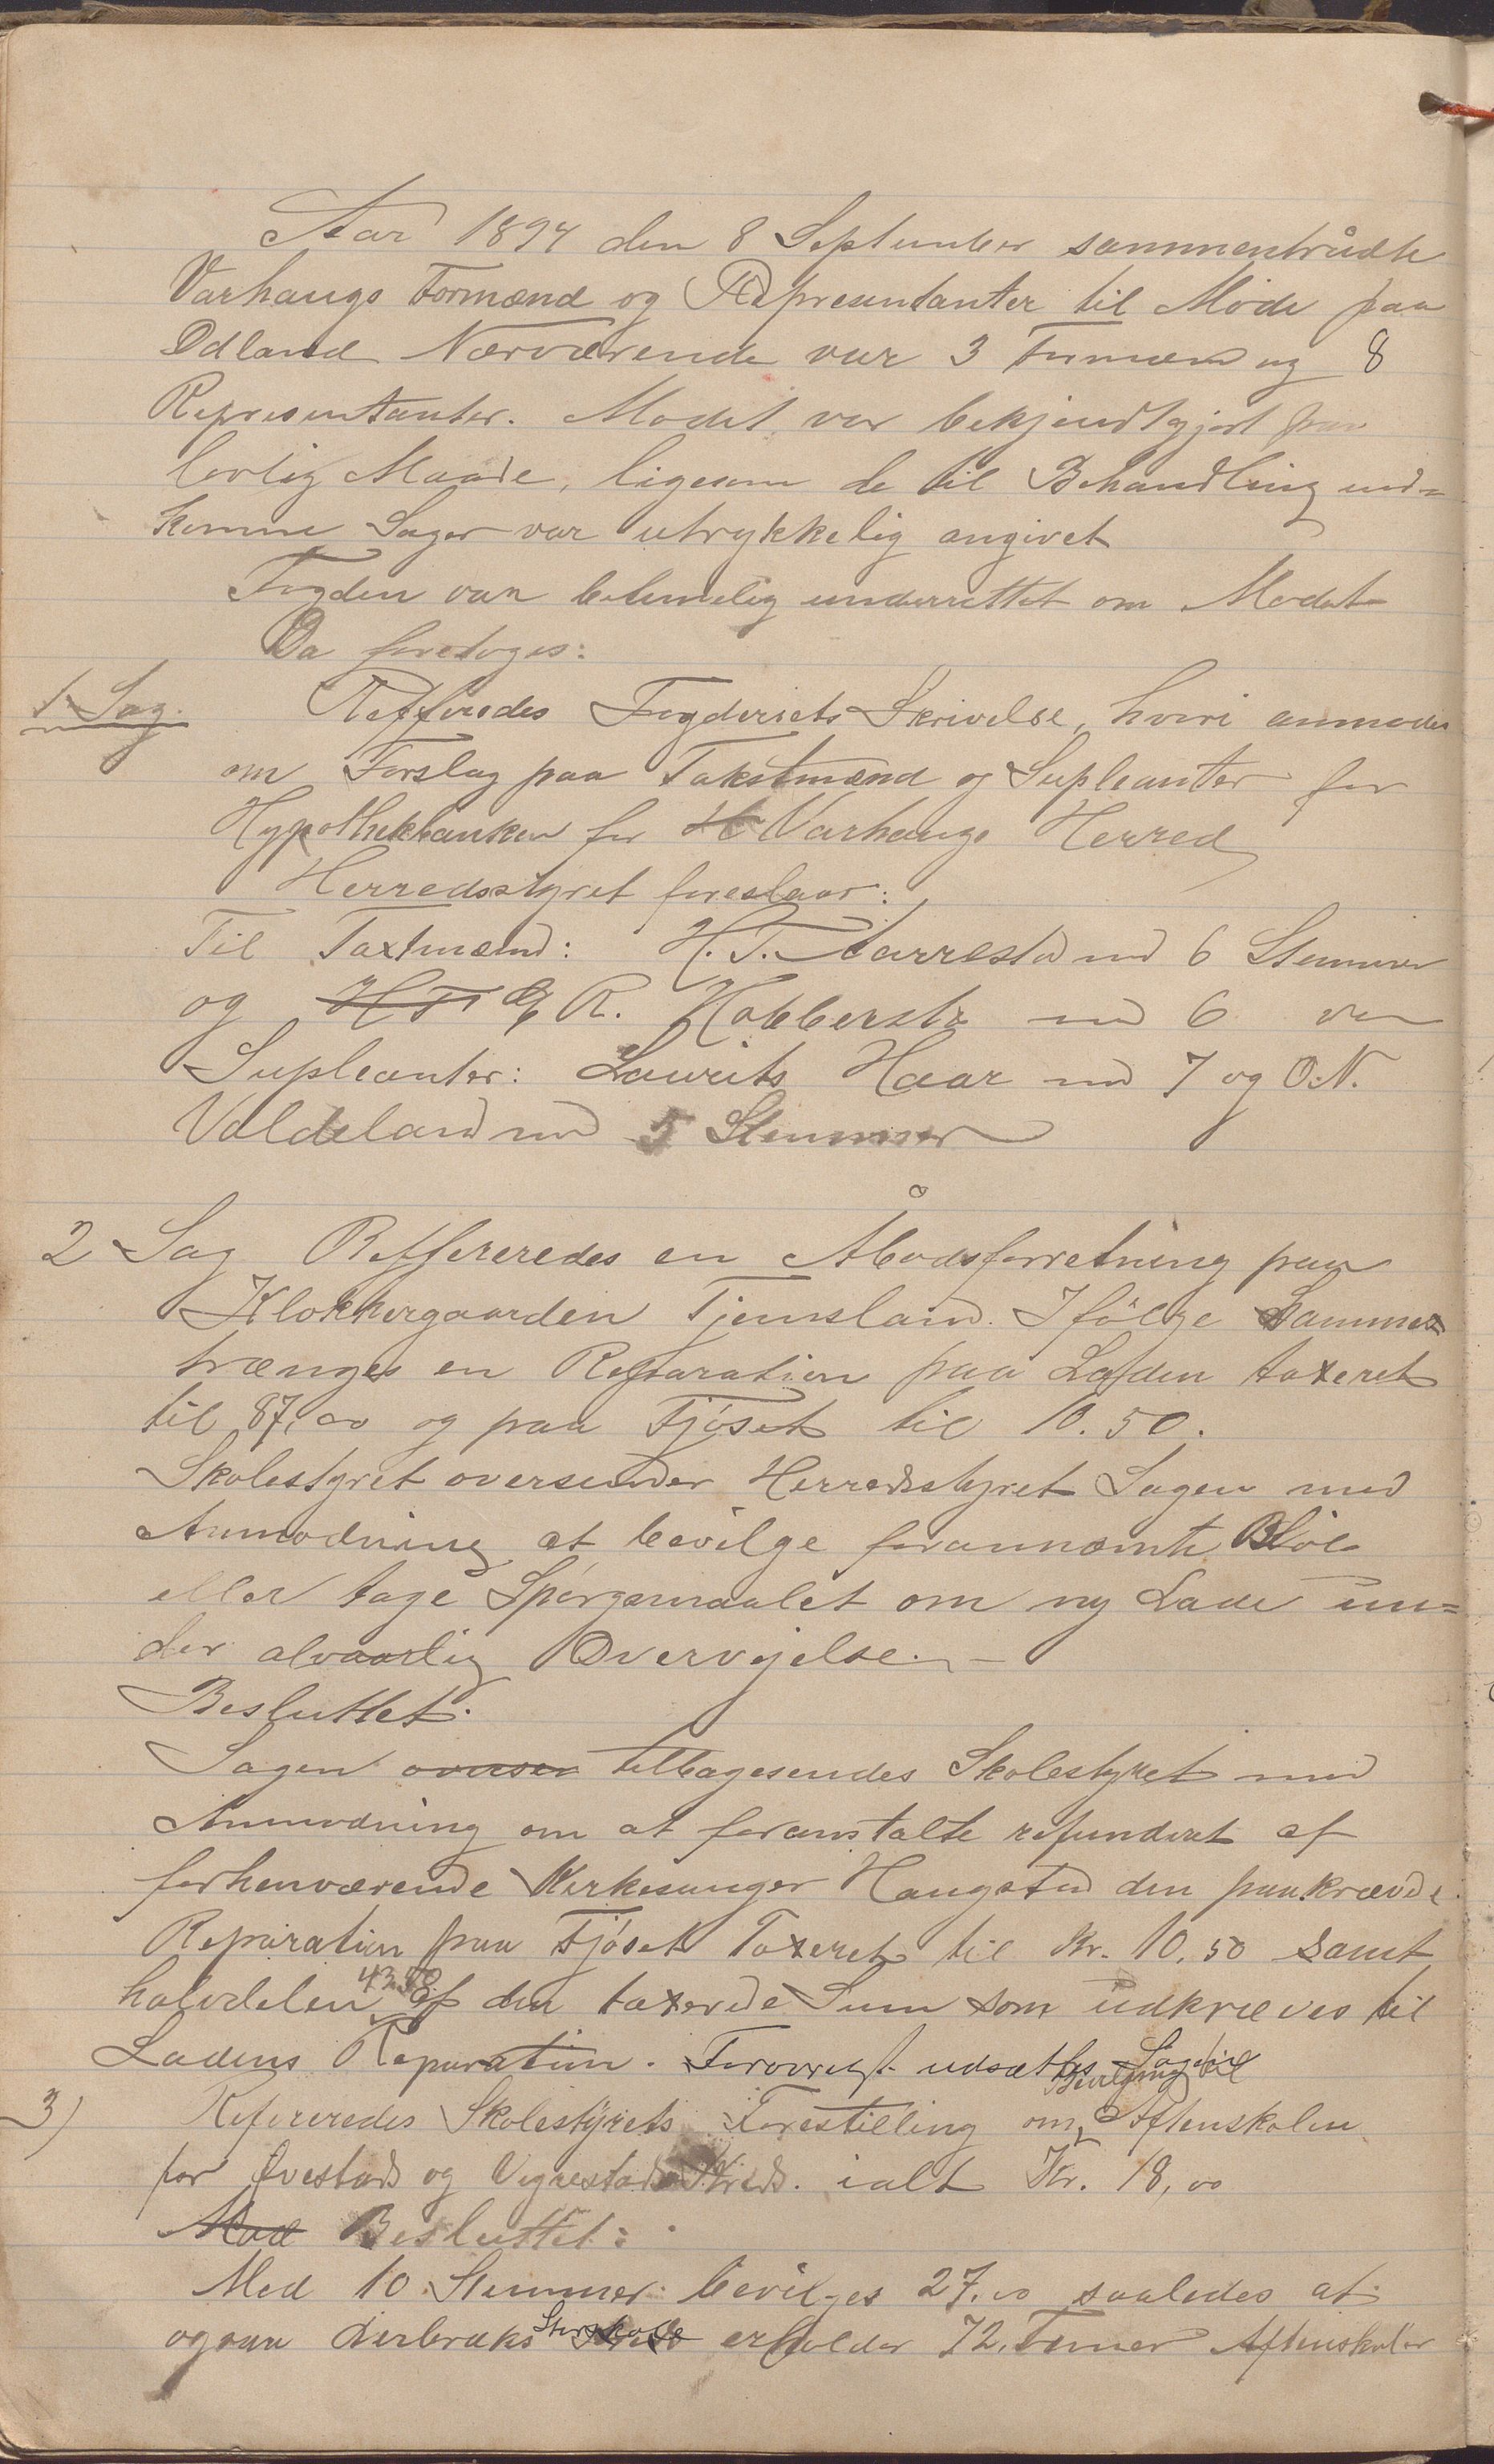 Aar 1894 den 8 September sammentrådte
Varhaugs Formænd og Representanter til Møde paa
Ødland Nærværende var 3 Formænd og 8
Representanter. Mødet var bekjendtgjort paa
lovlig Maade, ligesom de til Behandling ind-
komne Sager var utrykkelig angivet
Fogden var betimelig underrettet om Mødet
Da foretoges:
1 Sag. Refferedes Fogderiets Skrivelse, hvori anmodes
om Forslag paa Takstmænd og Supleanter for
Hypothekbanken for Varhaugs Herred
Herredsstyret foreslaar:
Til Taxtmænd: H. T. Narrestad med 6 Stemmer
og H T R. Hobberstad med 6 var
Supleanter: Laurits Haar med 7 og O. N.
Valdeland med 5 Stemmer
2 Sag Reffereredes en Åbodsforretning paa
Klokkergaarden Tjemsland. Ifølge Sammes
trænges en Reparation paa Laden taxeret
til 87,00 og paa Fjøset til 10.50.
Skolestyret oversender Herredsstyret Sagen med
Anmodning at bevilge forannæmte Bløb
eller tage Spørgsmaalet om ny Lade un=
der alvaarlig Overvejelse. —
Besluttet:
Sagen oversen tilbagesendes Skolestyret med
Anmodning om at foranstalte refunderet af
forhenværende Kirkesanger Haugstad den paakrævde
Reparation paa Fjøset Taxeret til Kr. 10,50 samt
halvdelen 43.50 af den taxerede Sum som udkræves til
Ladens Reparation. Forøvrigt udsættes Sagen
3) Refereredes Skolestyrets Forestilling om Bevilgning til Aftenskolen
for Ovestads og Vigrestads Kreds. ialt Kr. 18,00
Mod Besluttet:
Med 10 Stemmer bevilges 27.00 saaledes at
ogsaa Lerbræks Storskole erholder 72 Timer Aftenskoler